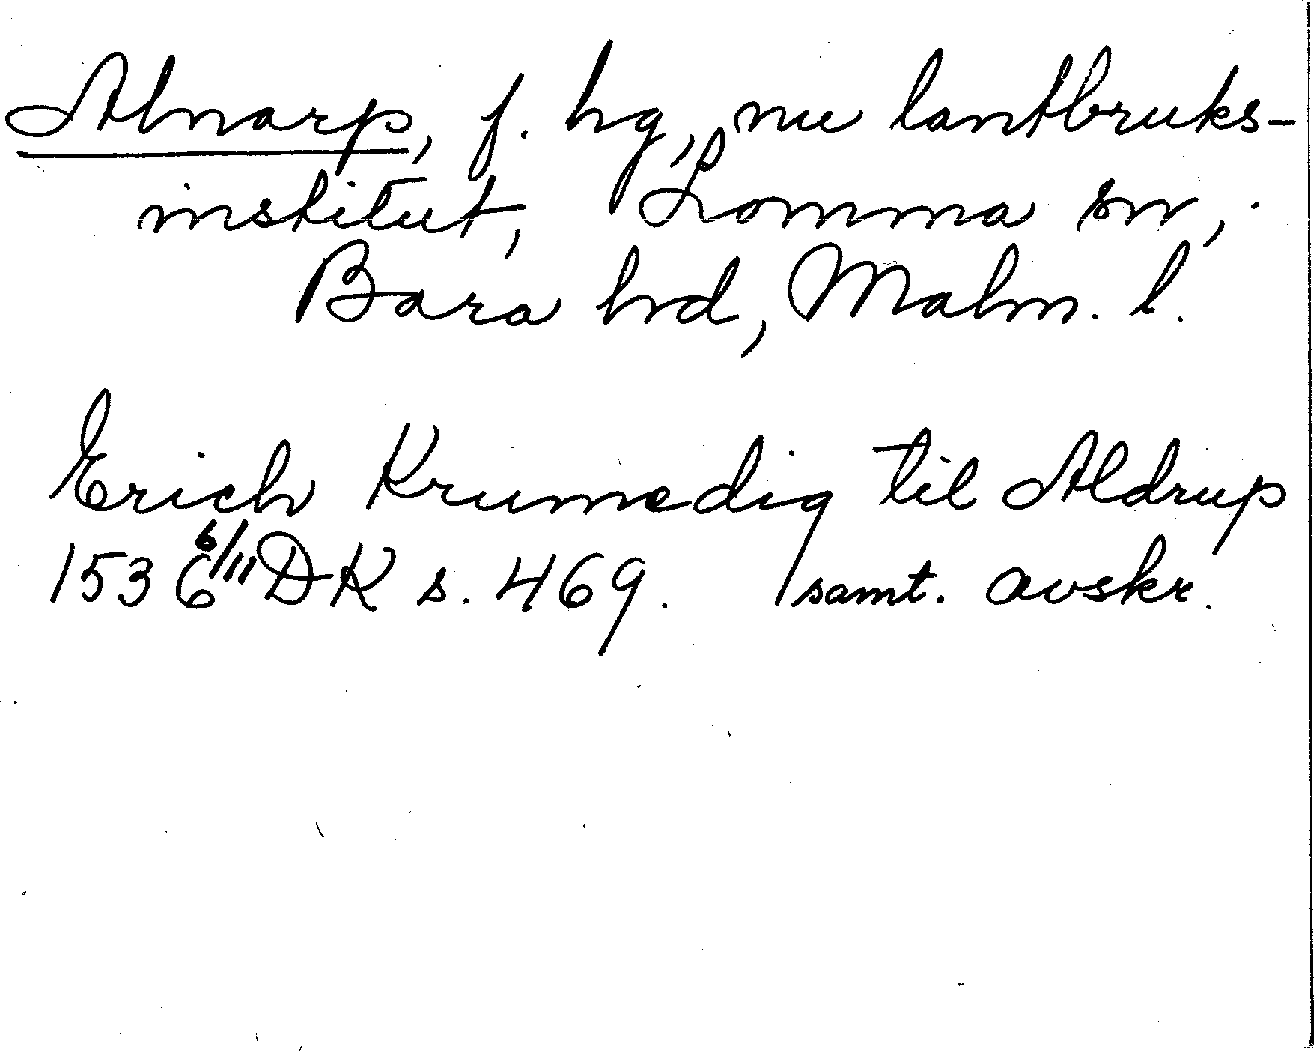 Alnarp, f. hg, nu lantbruks-
institut, Lomma sn,
Bara hd, Malm. l.
Erich Krumedig til Aldrup
1536 6/11 DK s. 469. samt. avskr.